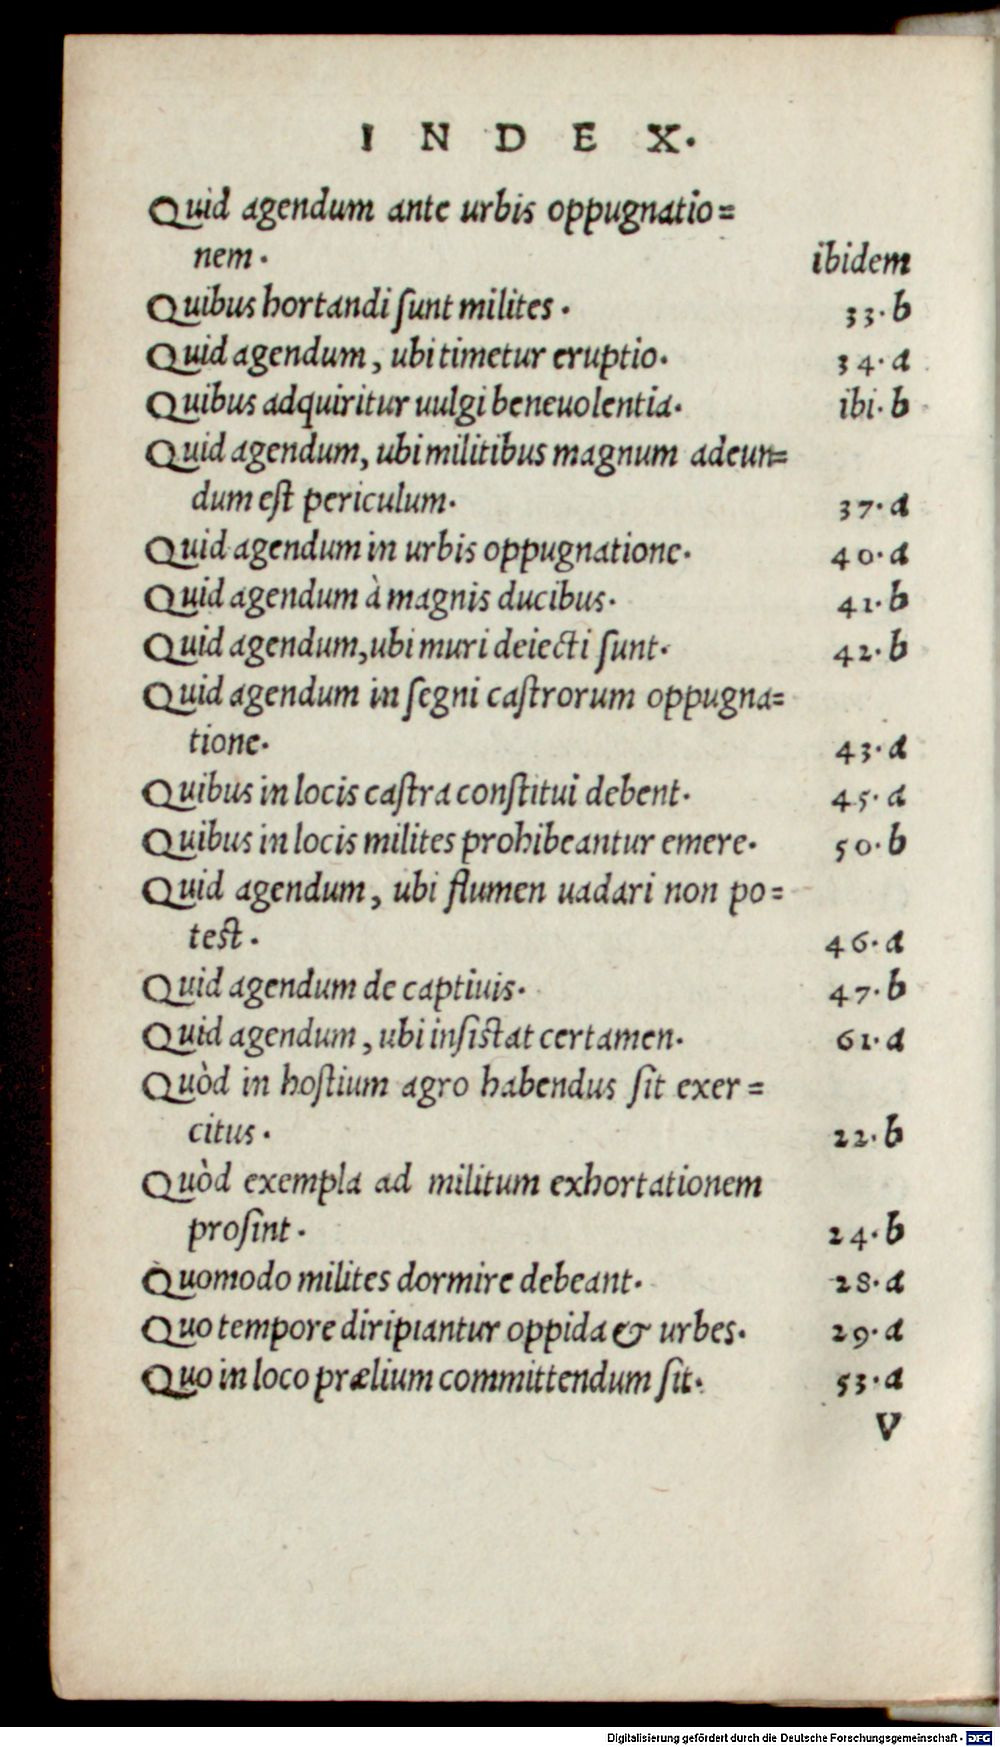 INDEX.
Quid agendum ante urbis oppugnatio=
nem. ibidem
Quibus hortandi ſunt milites. 33.b
Quid agendum, ubi timetur eruptio. 34.a
Quibus adquiritur uulgi beneuolentia. ibi.b
Quid agendum, ubi militibus magnum adeun=
dum eſt periculum. 37.a
Quid agendum in urbis oppugnatione. 40.a
Quid agendum à magnis ducibus. 41.b
Quid agendum, ubi muri deiecti ſunt. 42.b
Quid agendum in ſegni caſtrorum oppugna=
tione. 43.a
Quibus in locis caſtra conſtitui debent. 45.a
Quibus in locis milites prohibeantur emere. 50.b
Quid agendum, ubi flumen uadari non po=
test. 46.a
Quid agendum de captiuis. 47.b
Quid agendum, ubi inſistat certamen. 61.a
Quòd in hoſtium agro habendus ſit exer=
citus. 22.b
Quòd exempla ad militum exhortationem
proſint. 24.b
Quomodo milites dormire debeant. 28.a
Quo tempore diripiantur oppida & urbes. 29.a
Quo in loco prælium committendum ſit. 53.a
V
Digitalisierung gefördert durch die Deutsche Forschungsgemeinschaft - DFG